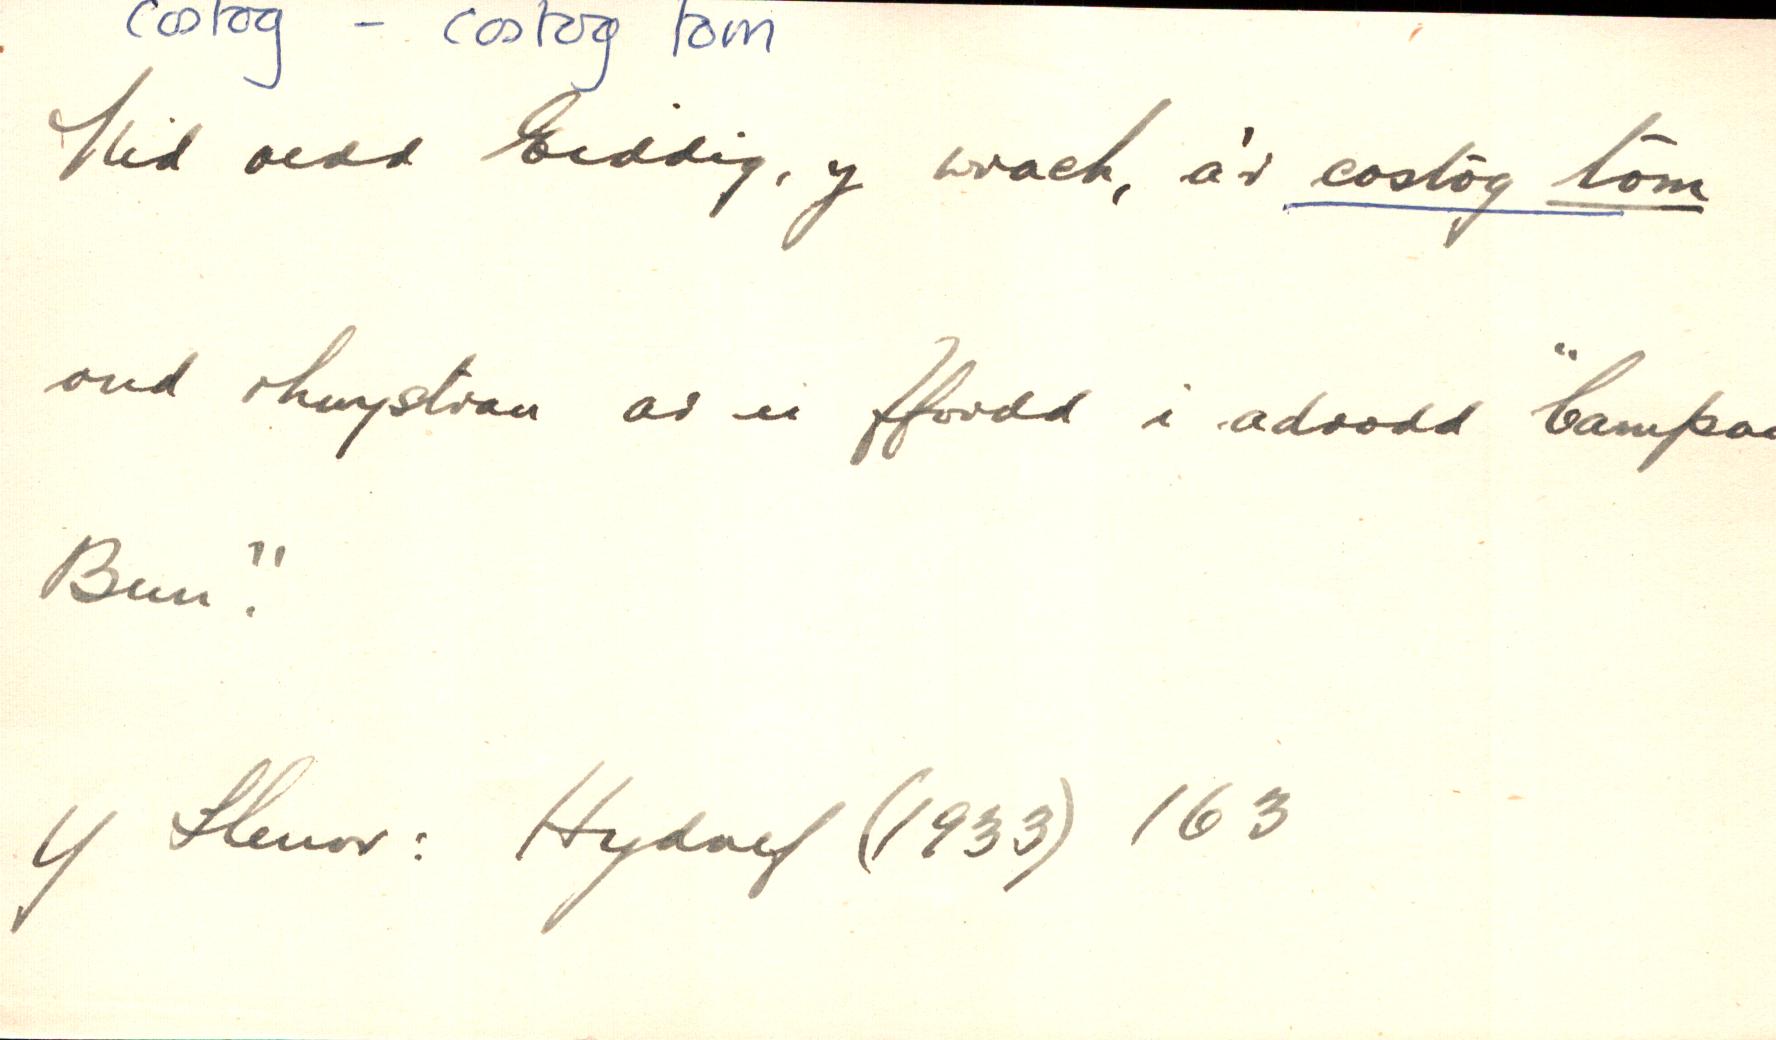 costog - costog tom
Nid oedd Eiddig, y wrach, a'r costog tom
ond rhwystrau ar ei ffordd i adrodd "Campau
Bun".
Y Llenor: Hydref (1933) 163